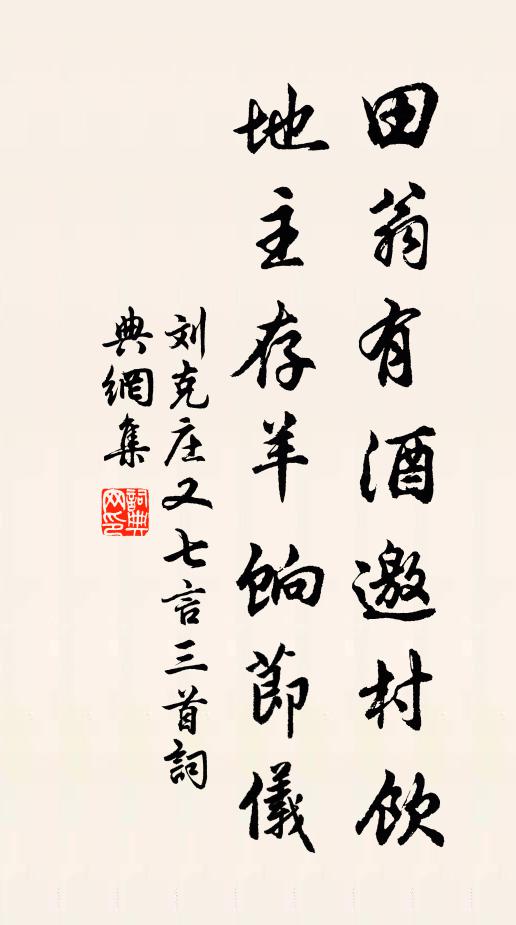 田翁有酒邀村饮
地主存羊饷節儀
刘克庄又七言三首詞
典網集
詞典
网印